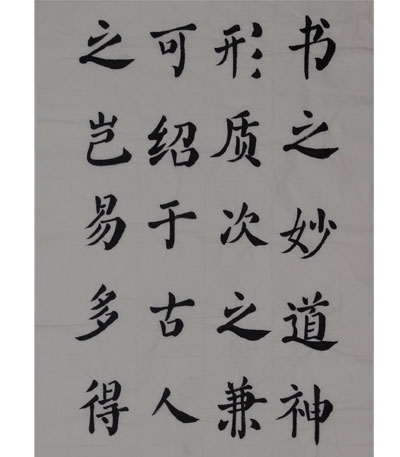 书之妙道神
形质次之兼
可绍于古人
之岂易多得